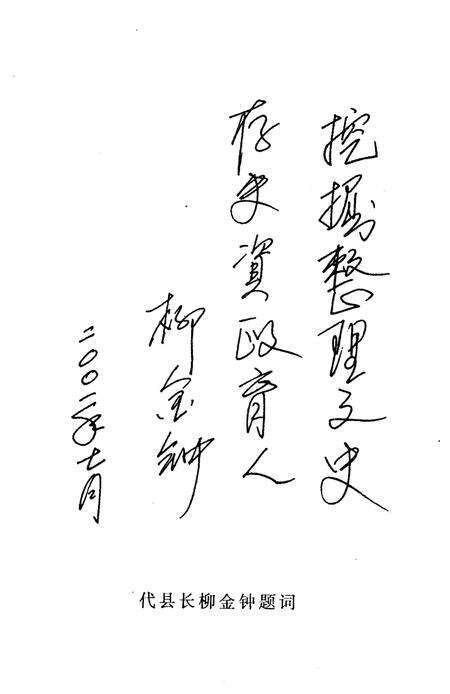 挖掘整理文史
存史資政育人
柳金钟
二〇〇二年七月
代县长柳金钟题词